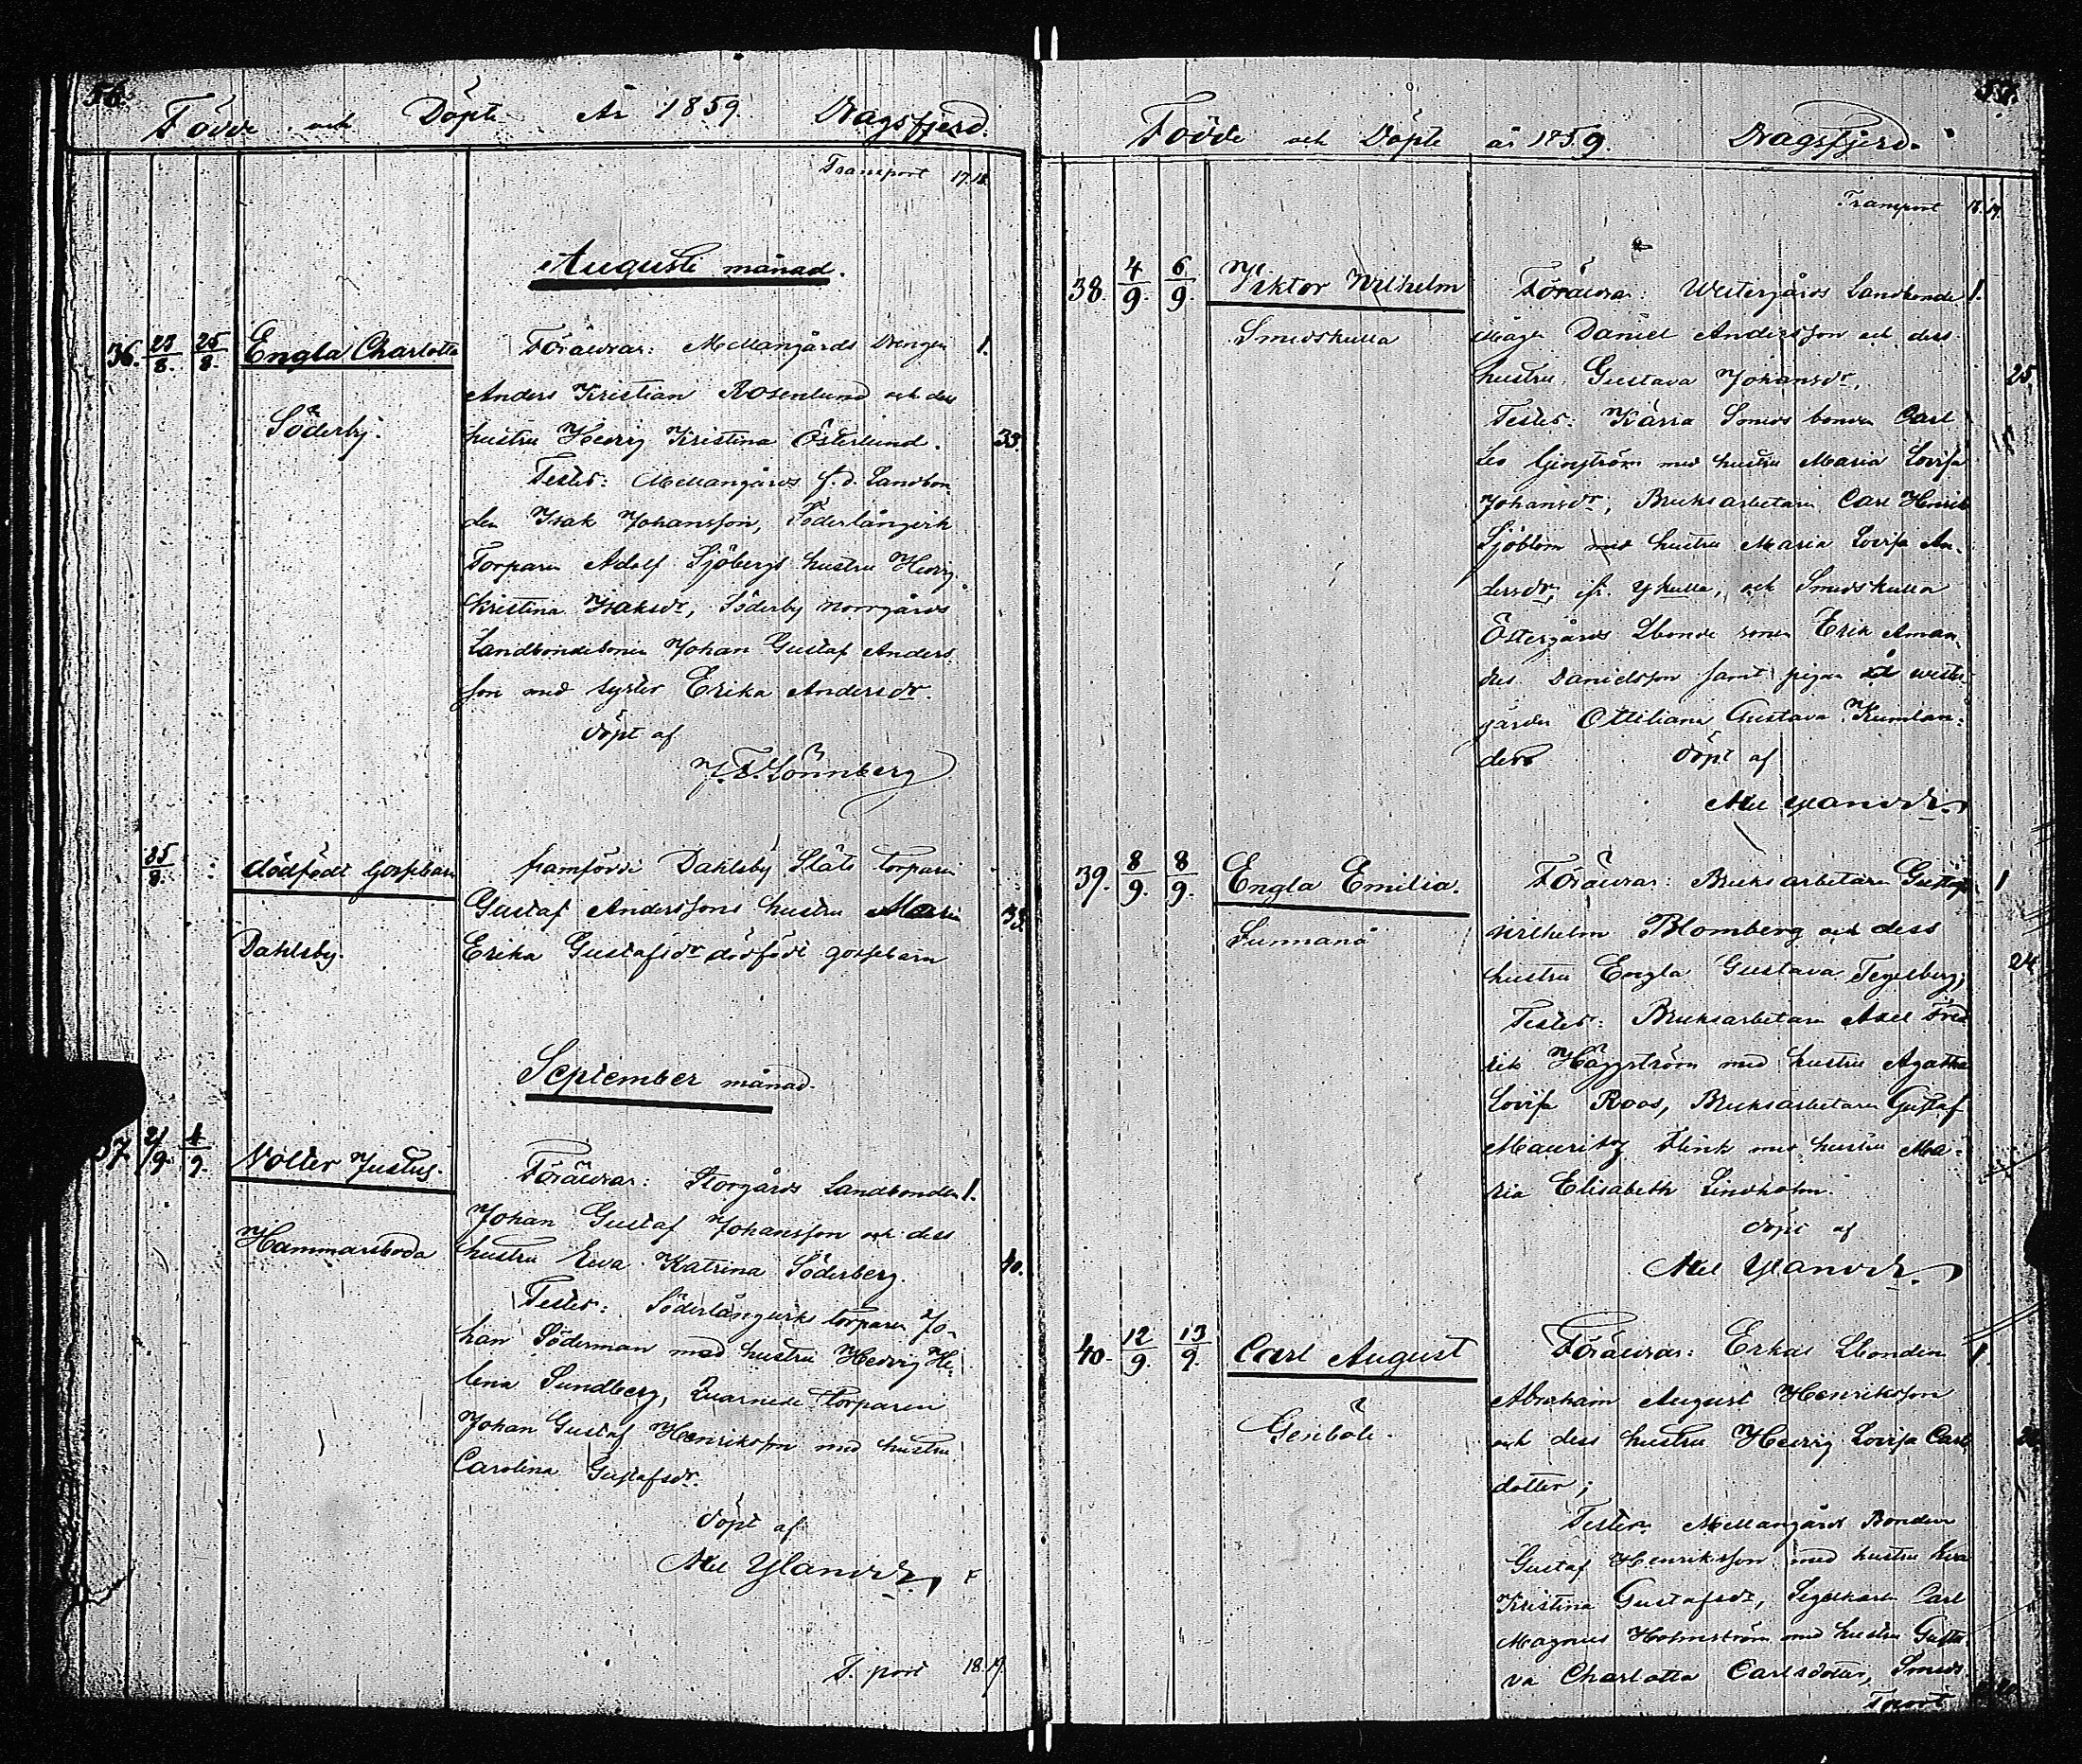 56.
Födde och Döpte År 1859. Dragsfjerd.
Transport 17. 18.
Augusti månad.
36. 23/8. 25/8. Engla Charlotta
Söderby.
Föräldrar: Mellangårds Drengen 1.
Anders Kristian Rosenlund och dess
hustru Hedvig Kristina Österlund. 33.
Testes: Mellangårds f. d. Landbon-
den Isak Johansson, Söderlångvik
Torparen Adolf Sjöbergs hustru Hedvig
Kristina Isaksdr, Söderby Norrgårds
Landbondesonen Johan Gustaf Anders
son med syster Erika Andersdr.
döpt af
J. F. Lönnberg
25/8. dödfödt gossebarn
Dahlsby.
framfödde Dahlsby Släts torparen
Gustaf Anderssons hustru Maria 33.
Erika Gustafsdr dödfödt gossebarn
September månad.
37. 2/9. 4/9. Volter Justus.
Hammarsboda
Föräldrar: Storgårds Landbonden 1.
Johan Gustaf Johansson och dess
hustru Eva Katrina Söderberg. 40.
Testes: Söderlångviks torparen Jo-
han Söderman med hustru Hedvig He-
lena Sundberg, Quarnede Torparen
Johan Gustaf Henriksson med hustru
Carolina Gustafsdr.
döpt af
Axel Ylander
T. port 18. 19.
57.
Födde och Döpte år 1859. Dragsfjerd.
Transport 18. 19.
38. 4/9. 6/9. Viktor Wilhelm
Smedskulla
Föräldrar: Westergårds Landbonde 1.
mågen Daniel Andersson och dess
hustru Gustava Johansdr. 25.
Testes: Kärra Smeds bonden Carl
Leo med hustru Maria Lovisa
Johansdr, Bruksarbetaren Carl Henrik
Sjöblom med hustru Maria Lovisa An-
dersdr, och Smedskulla
Östergårds Lbonde sonen Erik Aman-
dus Danielsson samt pigan å wester-
gården Ottiliana Gustava Kumlan-
der döpt af
Axel Ylander
39. 8/9. 8/9. Engla Emilia.
Sunnanå
Föräldrar: Bruksarbetaren Gustaf 1
Wilhelm Blomberg och dess
hustru Engla Gustava Tegelberg; 24
Testes: Bruksarbetaren Axel Fred
rik Häggström med hustru Agatha
Lovisa Roos, Bruksarbetaren Gustaf
Mauritz Flink med hustru Ma-
ria Elisabeth Lindholm.
döpt af
Axel Ylander
40. 12/9. 13/9. Carl August
Genböle.
Föräldrar: Erkas Lbonden 1.
Abraham August Henriksson
och dess hustru Hedvig Lovisa Carls
dotter;
Testes: Mellangårds Bonden
Gustaf Henriksson med hustru Eva
Kristina Gustafsdr, Segelkarlen Carl
Magnus Holmström med hustru Gusta
va Charlotta Carlsdotter, Smeds
Tport